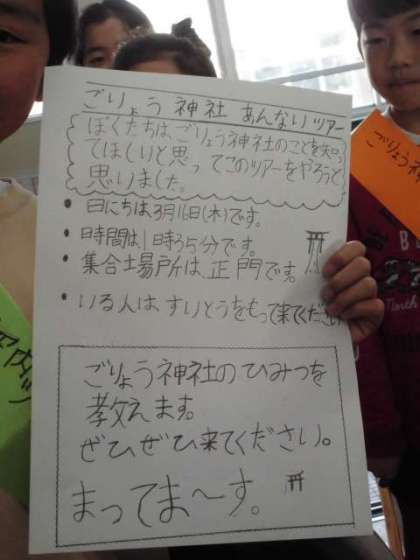 ごりょう神社 あんないツアー
ぼくたちは、ごりょう神社のことを知っ
てほしいと思ってこのツアーをやろうと
思いました。
• 日にちは3月16日(木)です。
• 時間は1時35分です。
• 集合場所は正門です。
• いる人はすいとうをもって来てください
ごりょう神社のひみつを
教えます。
ぜひぜひ来てください。
まってま〜す。
ごりょう神
North